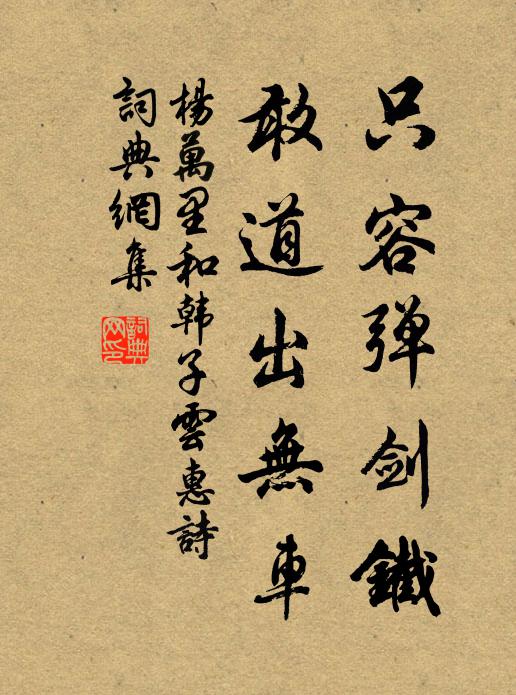 只容弹剑鐵
敢道出無車
楊萬里和韩子雲惠詩
詞典網集
詞典網印